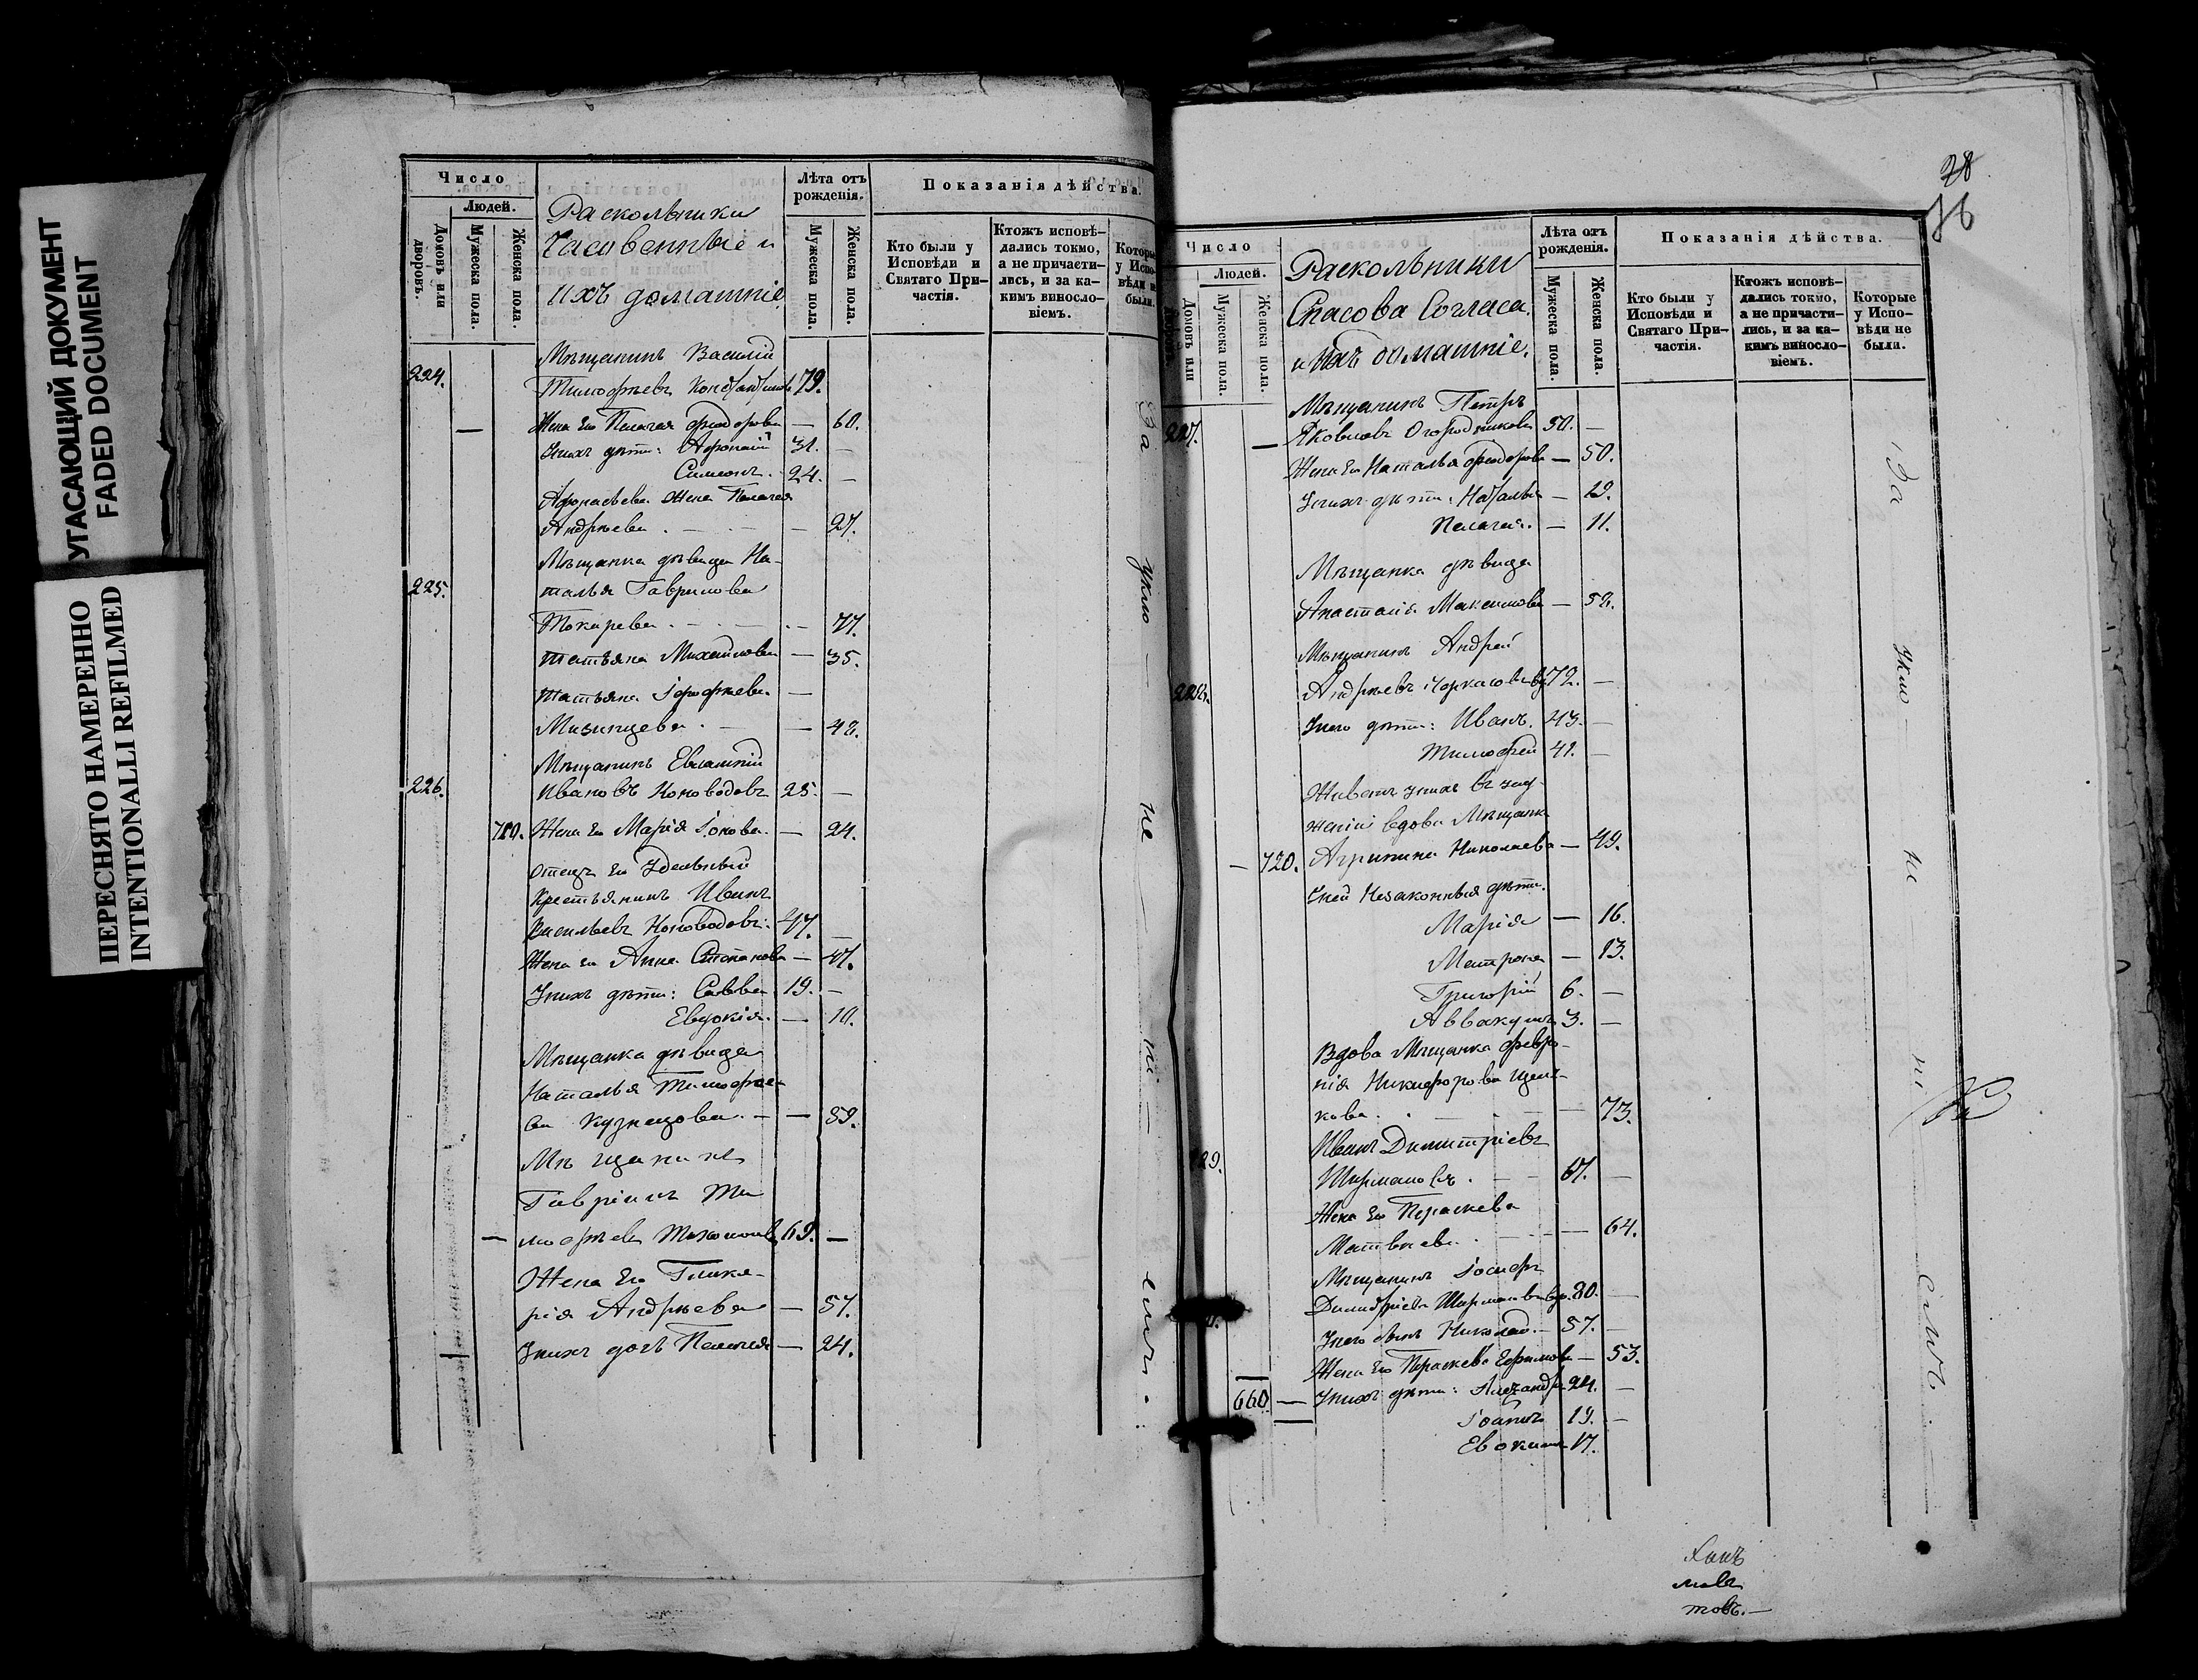 УГАСАЮЩИЙ ДОКУМЕНТ
FADED DOCUMENT
ПЕРЕСНЯТО НАМЕРЕННО
INTENTIONALLI REFILMED
Число
Людей.
Домовъ или дворовъ.
Мужеска пола.
Женска пола.
Раскольники
Часовенные и
ихъ домашніе
Лѣта отъ
рожденія.
Мужеска пола.
Женска пола.
Показанія дѣйства.
Кто были у
Исповѣди и
Святаго При-
частія.
Ктожъ исповѣ-
дались токмо,
а не причасти-
лись, и за ка-
кимъ виносло-
віемъ.
Которые
у Испо-
вѣди не
были.
Мѣщанинъ Василій
224. Тимофѣевъ 79.
— Жена Его Пелагея Феодорова — 60.
У нихъ дѣти: Афонасій 31. —
Симеонъ. 24. —
Афонасьева жена Пелагея
Андрѣева — 27.
Мѣщанка дѣвица На-
225. талья Гаврилова
Токарева — 77.
Татьяна Михайлова — 35.
Татьяна —
Мизинцева — 48.
Мѣщанинъ Евлампій
226. Ивановъ Коноводовъ 25. —
710. Жена Его Марія — 24.
Отецъ Его Удельный
Крестьянинъ Иванъ
Васильевъ Коноводовъ 47. —
Жена Его Анна Степанова — 47.
У нихъ дѣти: Савва 19. —
Евдокія — 10.
Мѣщанка дѣвица
Наталья Тимофѣе-
ва Кузнецова — 59.
Мѣщанинъ
Гавріилъ Ти
— мофѣевъ 69. —
Жена Его Глике-
рія Андрѣева — 57.
У нихъ дочь Пелагея — 24.
За
не
28
Число
Людей.
Домовъ или
Мужеска пола.
Женска пола.
Раскольники
Спасова Согласа
и ихъ домашніе.
Лѣта отъ
рожденія.
Мужеска пола.
Женска пола.
Показанія дѣйства.
Кто были у
Исповѣди и
Святаго При-
частія.
Ктожъ исповѣ-
дались токмо,
а не причасти-
лись, и за ка-
кимъ виносло-
віемъ.
Которые
у Испо-
вѣди не
были.
Мѣщанинъ Петръ
227. — Яковлевъ Огородниковъ 50. —
Жена Его Наталья Феодорова — 50.
У нихъ дѣти: Наталья — 19.
Пелагея. — 11.
Мѣщанка дѣвица
Анастасія Максимова — 52.
Мѣщанинъ Андрей
228. Андрѣевъ 72. —
У него дѣти: Иванъ. 43. —
Тимофей 41. —
Живетъ у нихъ въ услу-
женіи вдова Мѣщанка
— 720. Агрипина Николаева — 49.
У ней Незаконныя дѣти.
Марія — 16.
Матрона — 13.
Григорій 6. —
Аввакумъ 3. —
Вдова Мѣщанка Февро-
нія Никифорова
кова. — 73.
229. Иванъ Димитріевъ
67. —
Жена Его Параскева
Матвѣева — 64.
Мѣщанинъ Іосифъ
Димитріевъ 80. —
У него сынъ Николай 57. —
Жена Его Параскева Ефимова — 53.
660. — У нихъ дѣти: Александръ 24. —
Іоаннъ 19. —
Евдокимъ 17.
За